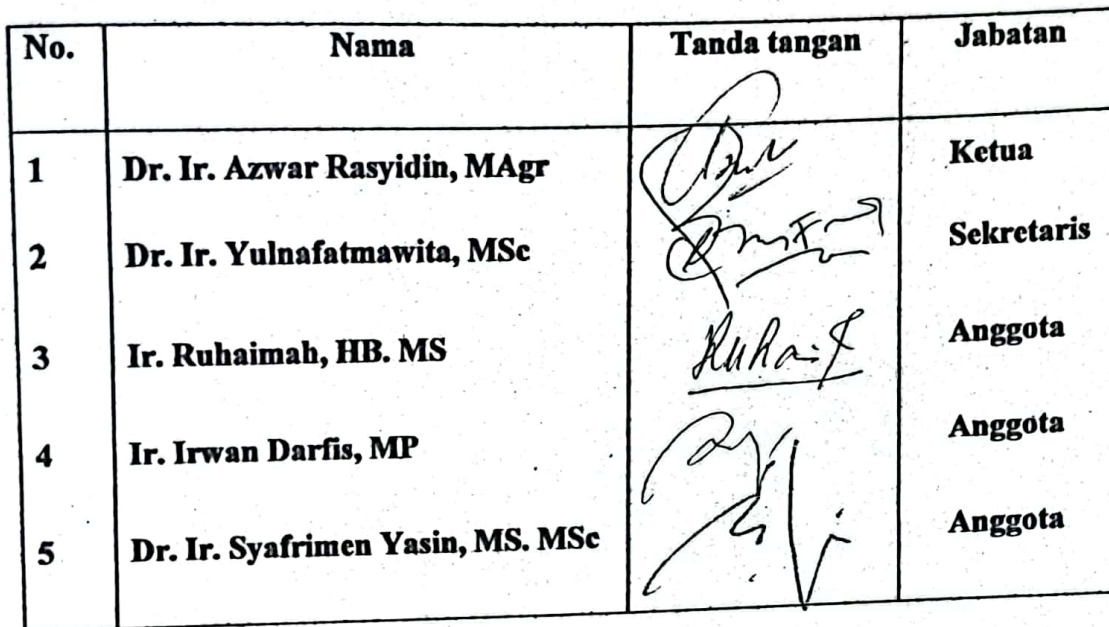 No. Nama Tanda tangan Jabatan
1 Dr. Ir. Azwar Rasyidin, MAgr Ketua
2 Dr. Ir. Yulnafatmawita, MSc Sekretaris
3 Ir. Ruhaimah, HB. MS Anggota
4 Ir. Irwan Darfis, MP Anggota
5 Dr. Ir. Syafrimen Yasin, MS. MSc Anggota